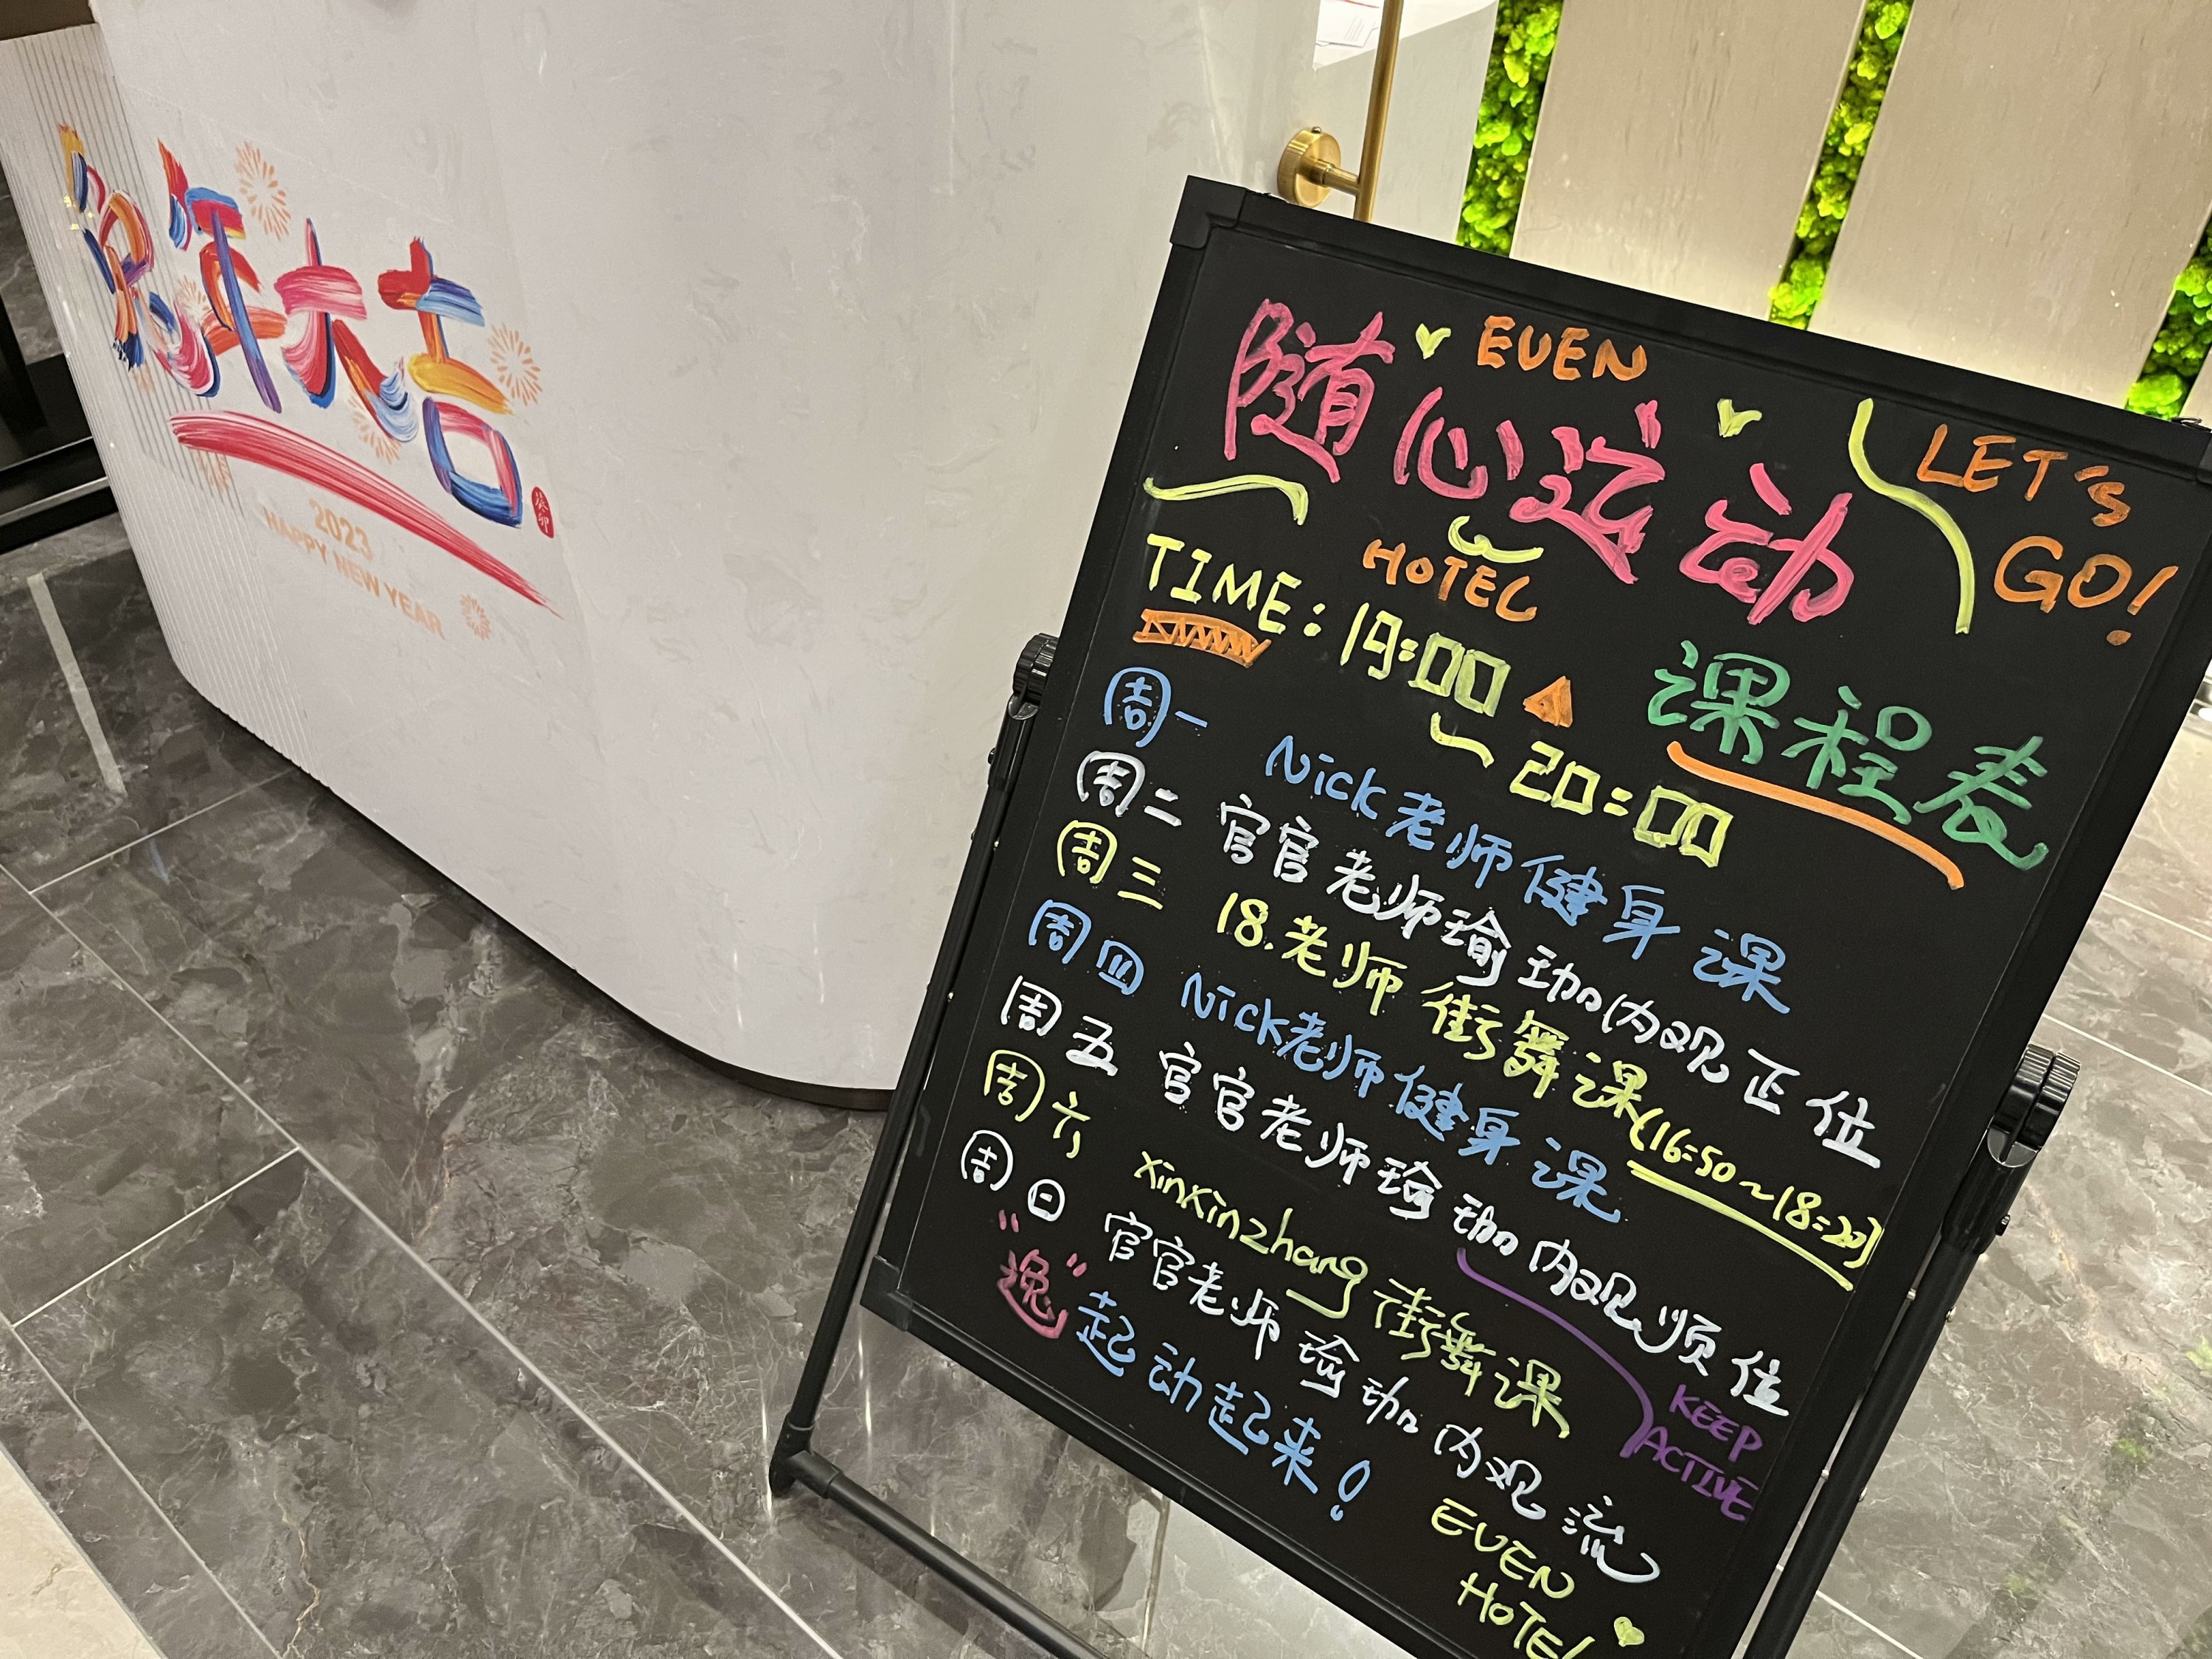 兔年大吉
癸卯
2023
HAPPY NEW YEAR
EVEN
随心运动
HOTEL
LET's
GO!
TIME: 19:00
~20:00
课程表
周一 Nick老师健身课
周二 官官老师瑜珈内观正位
周三 18.老师街舞课(16:50~18:20)
周四 Nick老师健身课
周五 官官老师瑜珈内观顺位
周六 xinxinzhang街舞课
周日 官官老师瑜珈内观流
"逸"起动起来!
KEEP
ACTIVE
EVEN
HOTEL